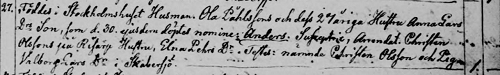 27. Föddes i Stockholmshuset Husman. Ola Påhlssons och dess 27 åriga Hustru Anna Lars
Dr. Son, som d. 30. ejusdem döptes nomine; Anders: Susceptrix, Arrendat. Christen
Olssons fru Hustru, Elna Pehrs Dr. Testes: nämnde Christen Olsson och Pigan
Walborg Lars Dr. i Skabersjö.